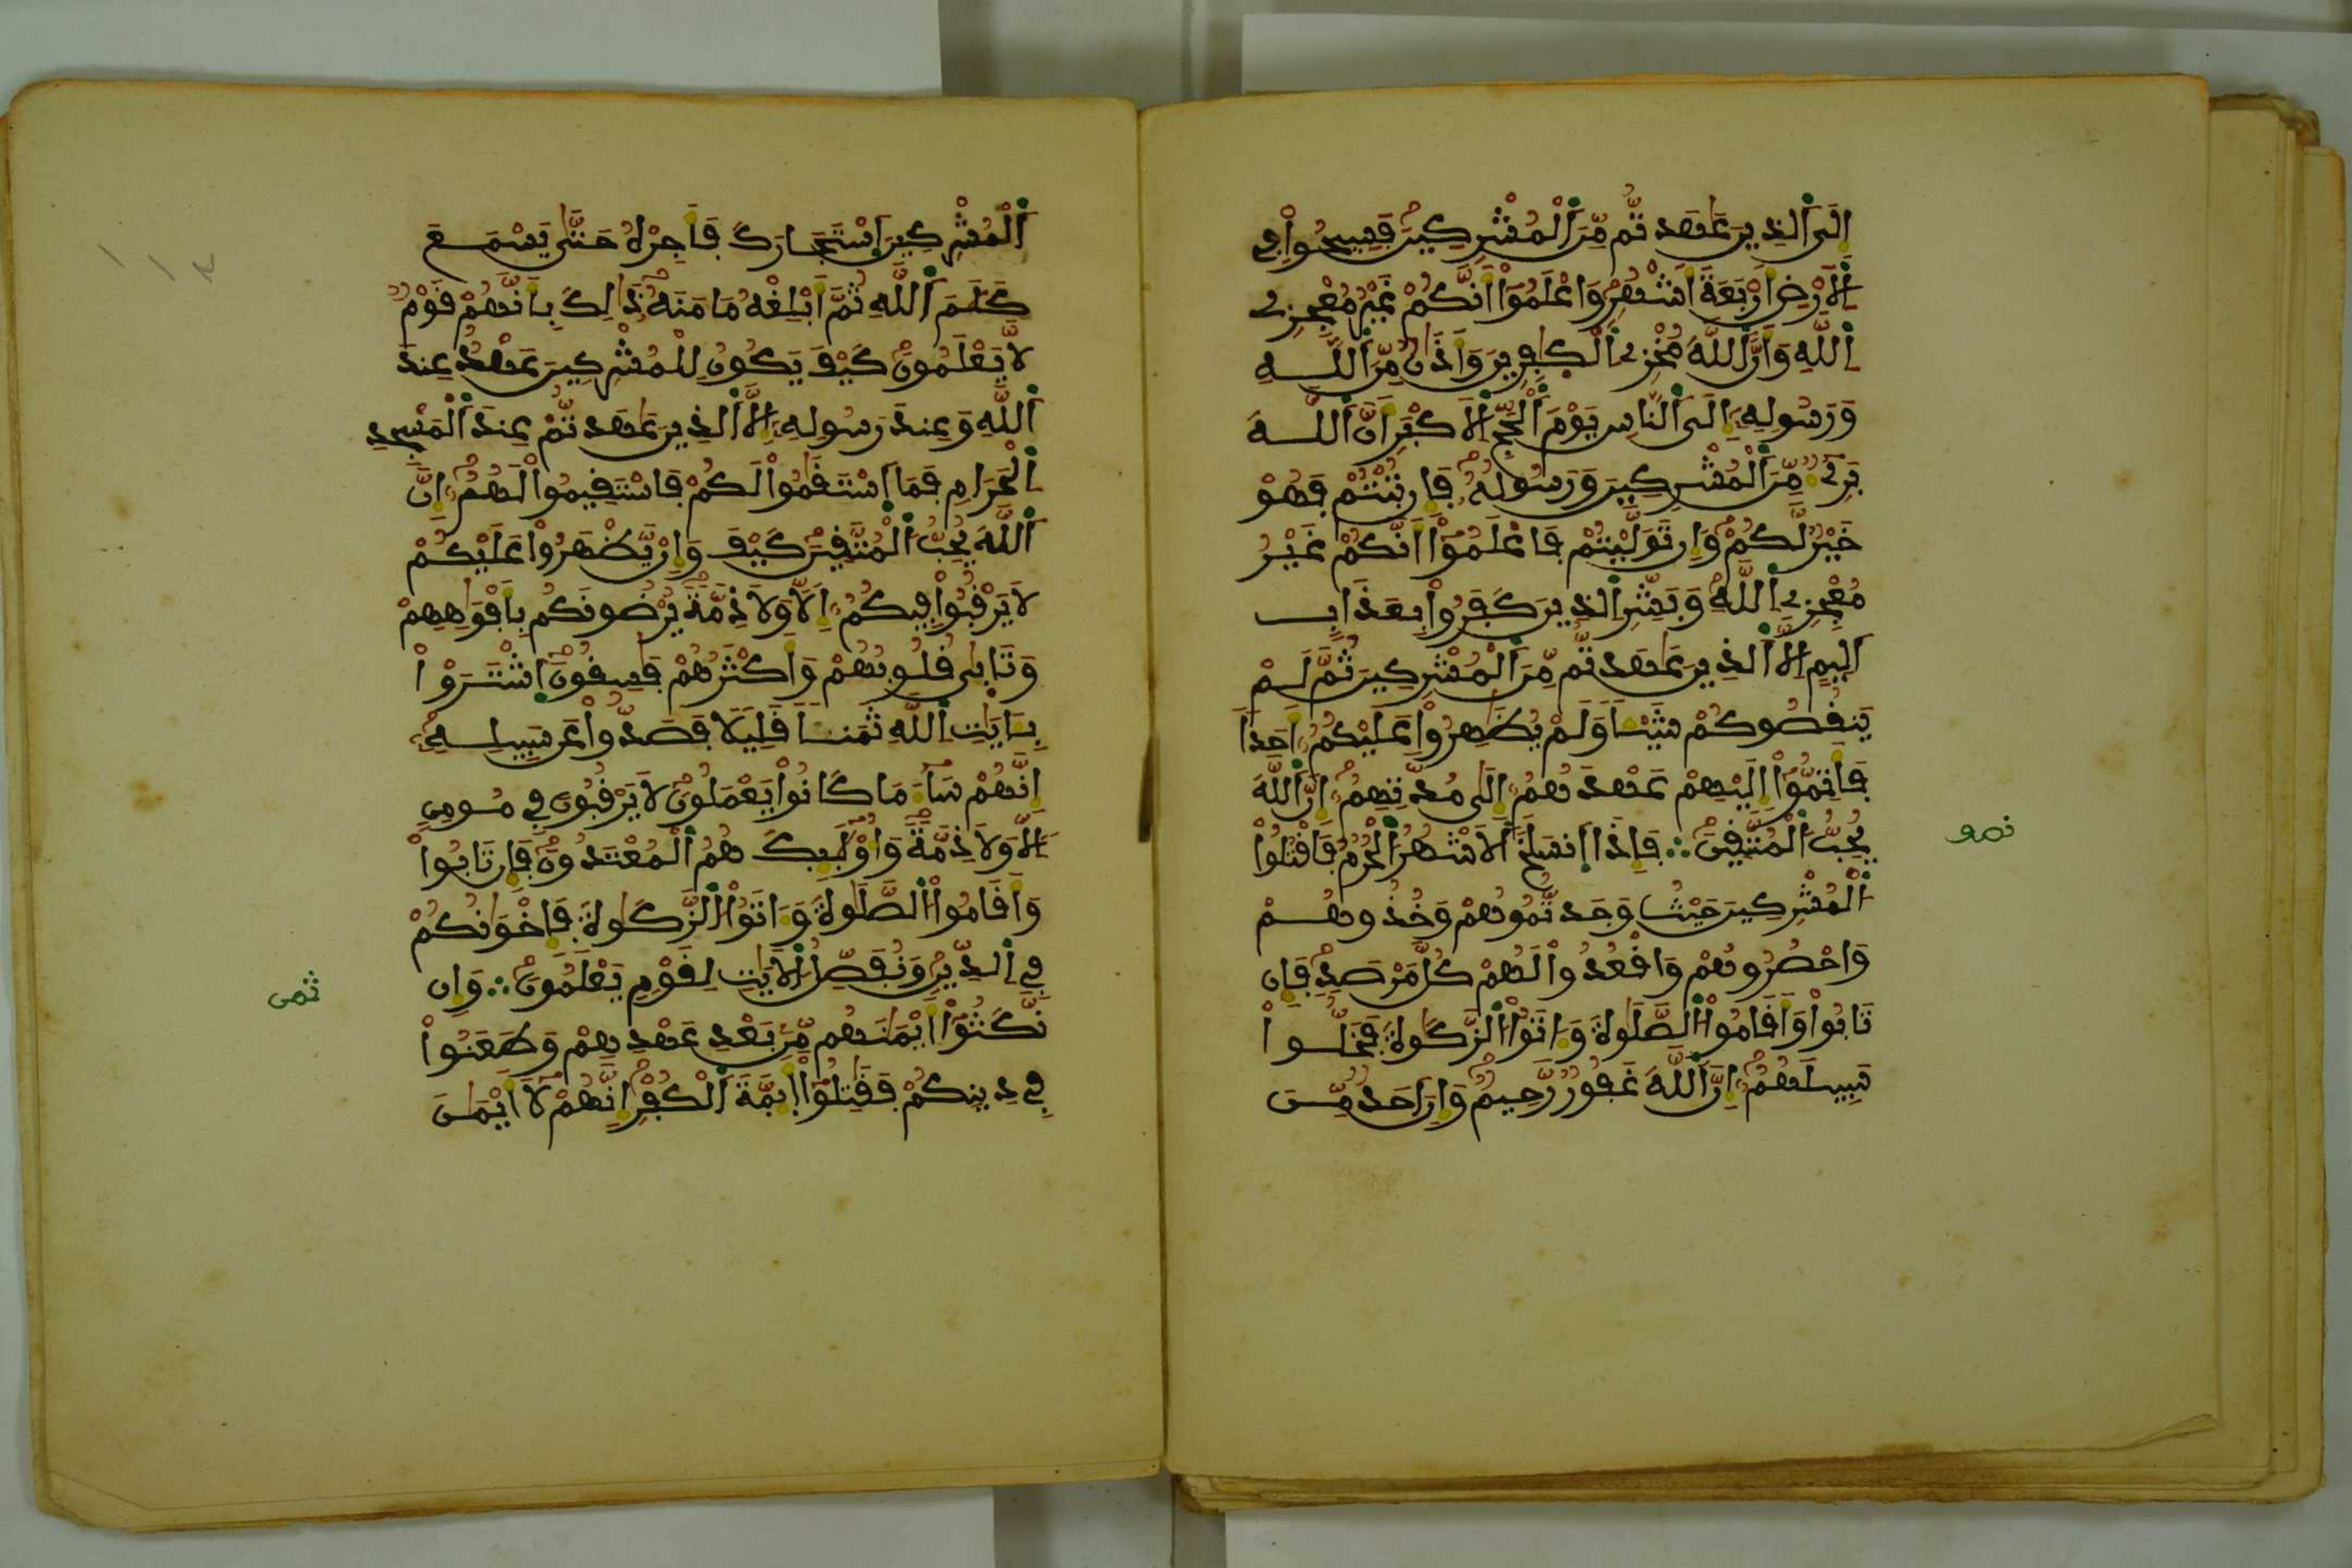 إِلَى ٱلذِينَ عَٰهَدتُّم مِّنَ ٱلْمُشْرِكِينَ فَسِيحُواْ فِى
ٱلَارْضِ أَرْبَعَةَ أَشْهُرٍ وَاعْلَمُوٓاْ أَنَّكُمْ غَيْرُ مُعْجِزِى
ٱللَّهِ وَأَنَّ ٱللَّهَ مُخْزِى ٱلْكٰفِرِينَ وَأَذَٰنٌ مِّنَ ٱللَّهِ
وَرَسُولِهِۦٓ إِلَى ٱلنَّاسِ يَوْمَ ٱلْحَجِّ ٱلَاكْبَرِ أَنَّ ٱللَّهَ
بَرِىٓءٌ مِّنَ ٱلْمُشْرِكِينَ وَرَسُولُهُۥ فَإِن تُبْتُمْ فَهُوَ
خَيْرٌ لَّكُمْ وَإِن تَوَلَّيْتُمْ فَاعْلَمُوٓاْ أَنَّكُمْ غَيْرُ
مُعْجِزِى ٱللَّهِ وَبَشِّرِ ٱلذِينَ كَفَرُواْ بِعَذَابٍ
اَلِيمٍ اِلَّا ٱلذِينَ عَٰهَدتُّم مِّنَ ٱلْمُشْرِكِينَ ثُمَّ لَمْ
يَنقُصُوكُمْ شَيْـًٔا وَلَمْ يُظَٰهِرُواْ عَلَيْكُمُۥٓ أَحَدًا
فَأَتِمُّوٓاْ إِلَيْهِمْ عَهْدَهُمُۥٓ إِلَىٰ مُدَّتِهِمُۥٓ إِنَّ ٱللَّهَ
يُحِبُّ ٱلْمُتَّقِينَ ∴ فَإِذَا اَنسَلَخَ ٱلَاشْهُرُ ٱلْحُرُمُ فَاقْتُلُواْ
ٱلْمُشْرِكِينَ حَيْثُ وَجَدتُّمُوهُمْ وَخُذُوهُمْ
وَاحْصُرُوهُمْ وَاقْعُدُواْ لَهُمْ كُلَّ مَرْصَدٍ فَإِن
تَابُواْ وَأَقَامُواْ ٱلصَّلَوٰةَ وَءَاتَوُاْ ٱلزَّكَوٰةَ فَخَلُّواْ
سَبِيلَهُمُۥٓ إِنَّ ٱللَّهَ غَفُورٌ رَّحِيمٌ وَإِنَ اَحَدٌ مِّنَ
نصف
ٱلْمُشْرِكِينَ ٱسْتَجَارَكَ فَأَجِرْهُ حَتَّىٰ يَسْمَعَ
كَلَٰمَ ٱللَّهِ ثُمَّ أَبْلِغْهُ مَامَنَهُۥ ذَٰلِكَ بِأَنَّهُمْ قَوْمٌ
لَّا يَعْلَمُونَ كَيْفَ يَكُونُ لِلْمُشْرِكِينَ عَهْدٌ عِندَ
ٱللَّهِ وَعِندَ رَسُولِهِۦٓ إِلَّا ٱلذِينَ عَٰهَدتُّمْ عِندَ ٱلْمَسْجِدِ
ٱلْحَرَامِ فَمَا اَسْتَقَٰمُواْ لَكُمْ فَاسْتَقِيمُواْ لَهُمُۥٓ إِنَّ
ٱللَّهَ يُحِبُّ ٱلْمُتَّقِينَ كَيْفَ وَإِنْ يَّظْهَرُواْ عَلَيْكُمْ
لَا يَرْقُبُواْ فِيكُمُۥٓ إِلًّا وَلَا ذِمَّةً يُرْضُونَكُم بِأَفْوَٰهِهِمْ
وَتَابَىٰ قُلُوبُهُمْ وَأَكْثَرُهُمْ فَٰسِقُونَ ٱشْتَرَوْاْ
بِـَٔايَٰتِ ٱللَّهِ ثَمَنًا قَلِيلًا فَصَدُّواْ عَن سَبِيلِهِۦٓ
إِنَّهُمْ سَآءَ مَا كَانُواْ يَعْمَلُونَ لَا يَرْقُبُونَ فِى مُومِنٍ
اِلًّا وَلَا ذِمَّةً وَأُوْلَٰٓئِكَ هُمُ ٱلْمُعْتَدُونَ فَإِن تَابُواْ
وَأَقَامُواْ ٱلصَّلَوٰةَ وَءَاتَوُاْ ٱلزَّكَوٰةَ فَإِخْوَٰنُكُمْ
فِى ٱلدِّينِ وَنُفَصِّلُ ٱلَايَٰتِ لِقَوْمٍ يَعْلَمُونَ ∴ وَإِن
نَّكَثُوٓاْ أَيْمَٰنَهُم مِّنۢ بَعْدِ عَهْدِهِمْ وَطَعَنُواْ
فِى دِينِكُمْ فَقَٰتِلُوٓاْ أَئِمَّةَ ٱلْكُفْرِ إِنَّهُمْ لَا أَيْمَٰنَ
ثمن